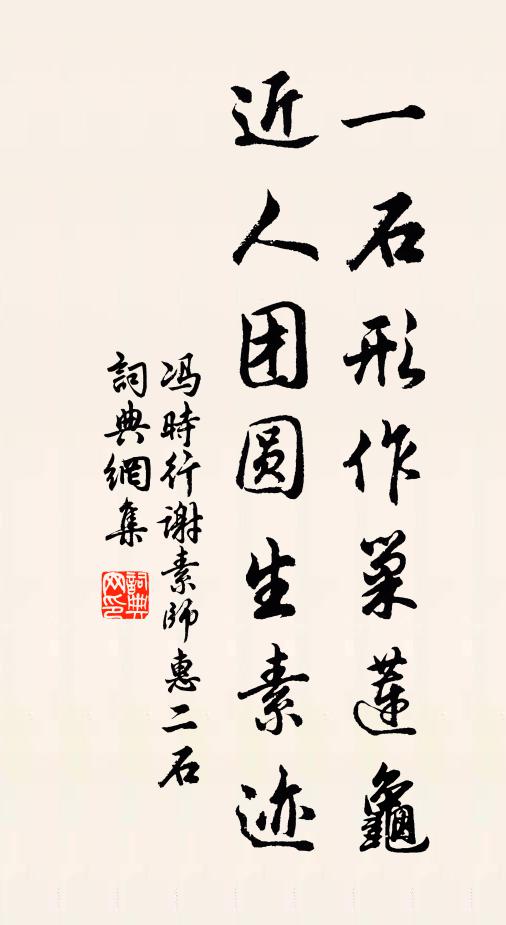 一石形作巢蓮龜
近人团圆生素迹
冯時行谢素師惠二石
詞典網集
詞典网印